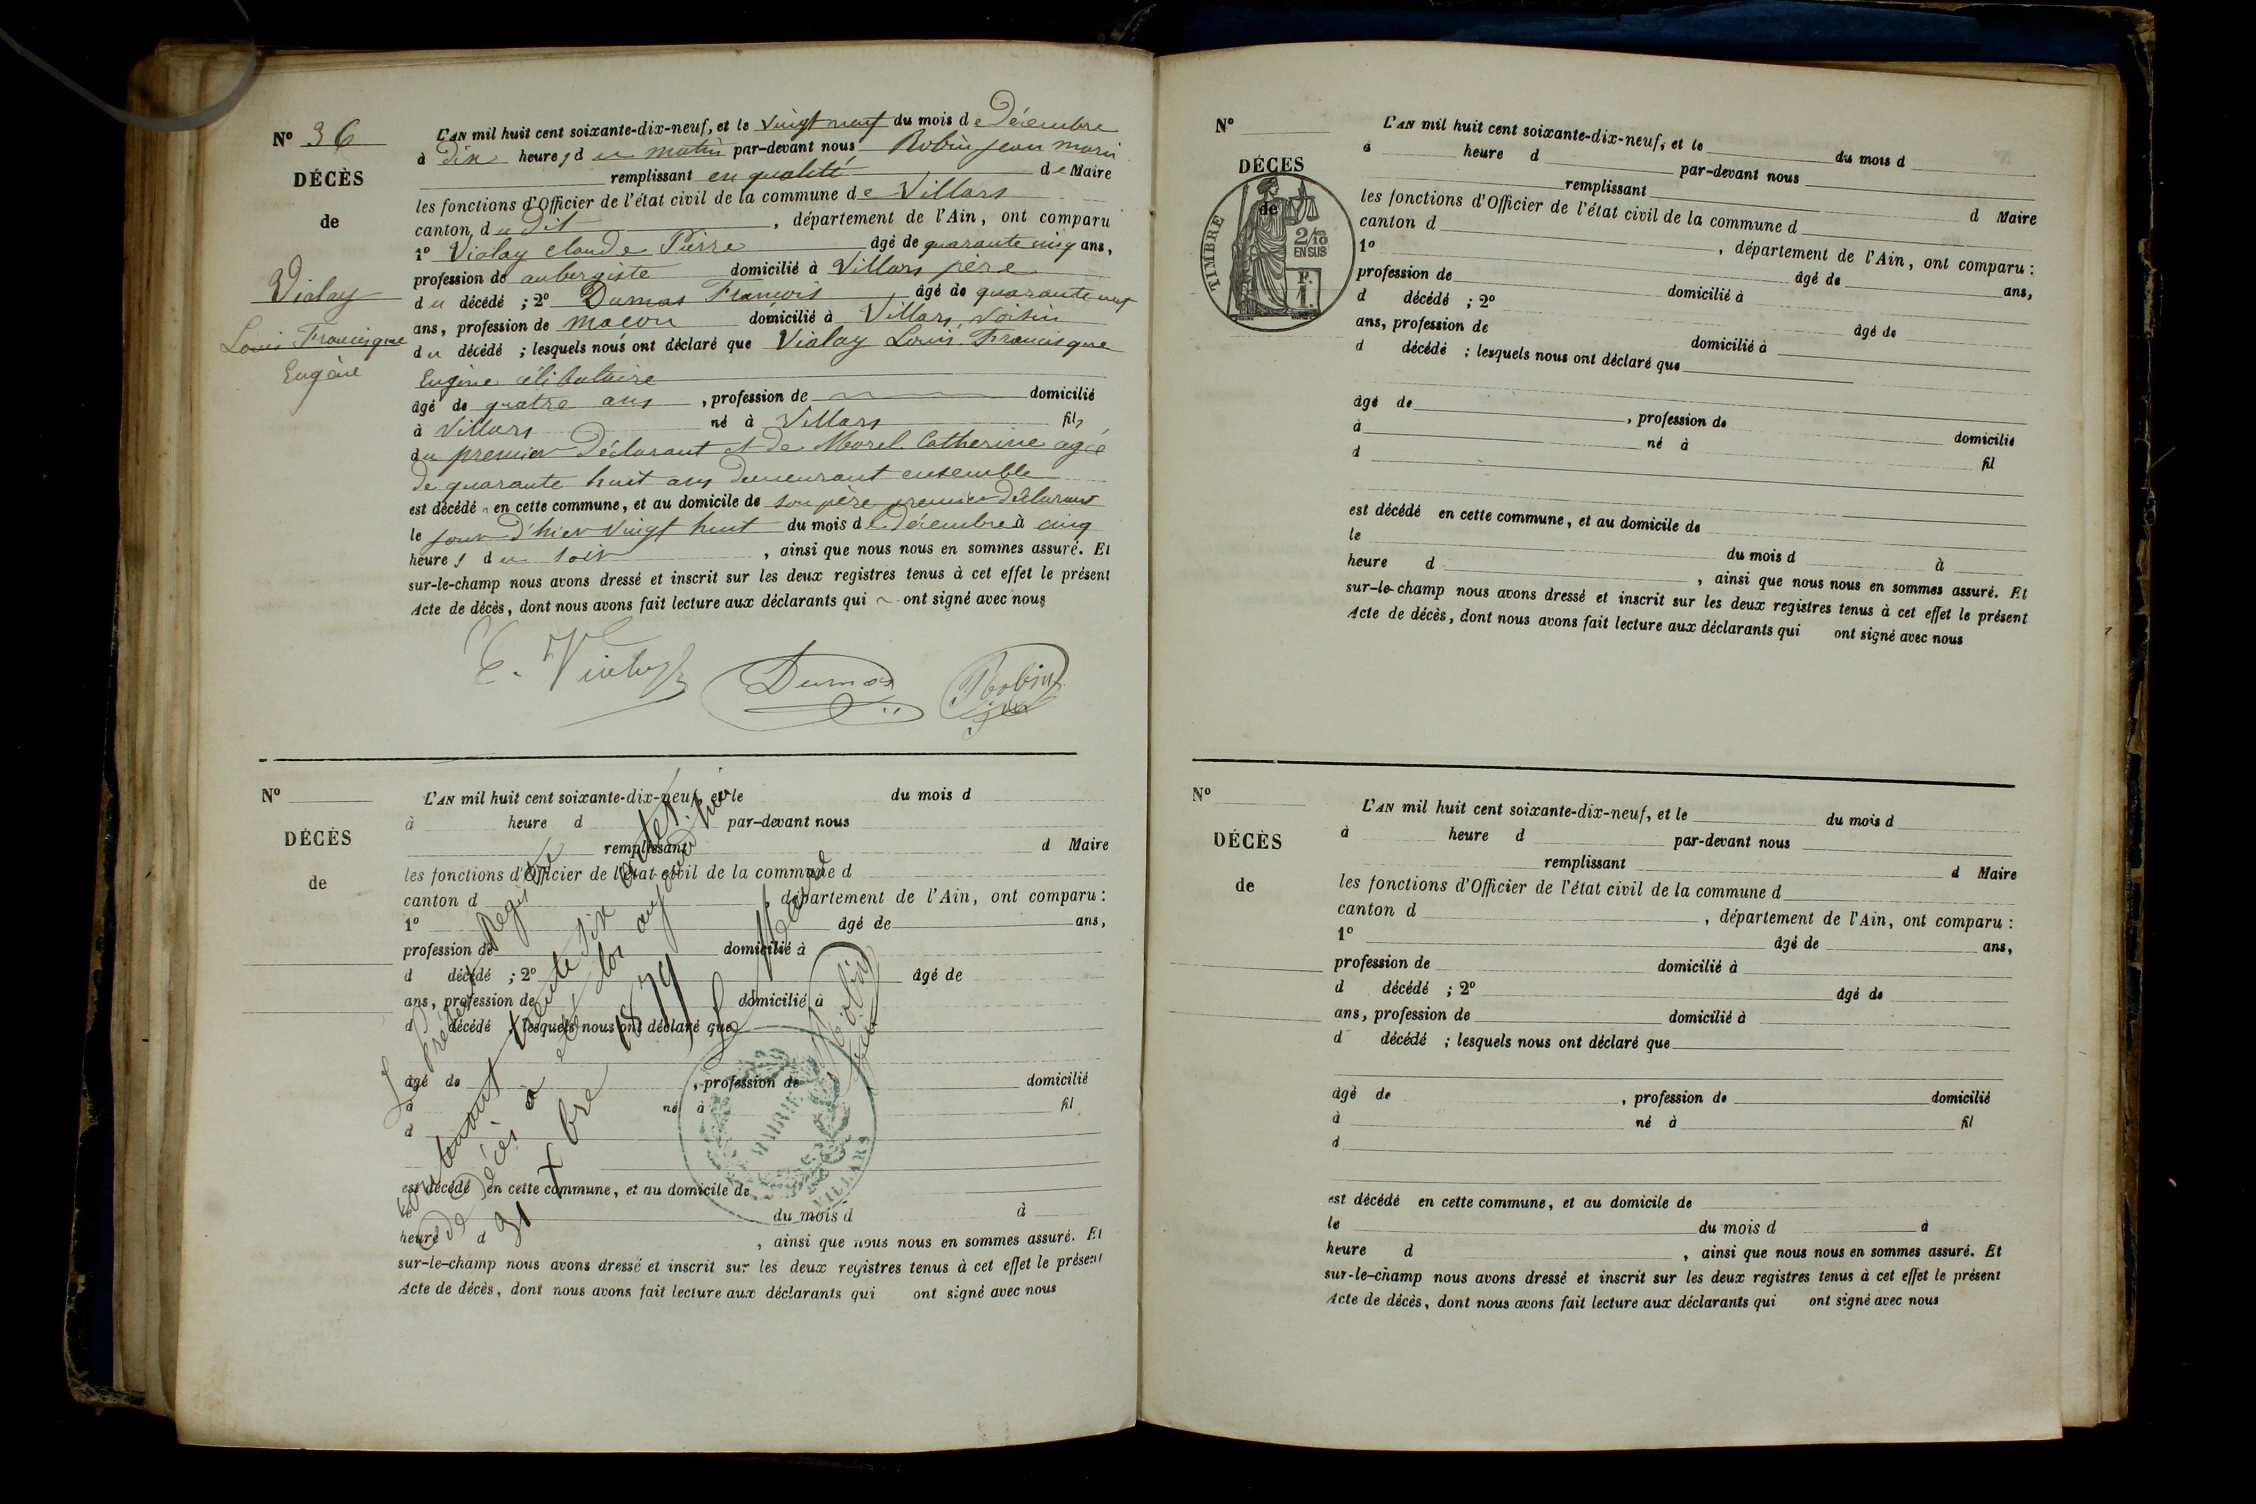 N° 36
DÉCÈS
de
Violay
Louis Francisque
Eugène
L'AN mil huit cent soixante-dix-neuf, et le vingt neuf du mois de Décembre
à dix heures du matin par-devant nous Robin Jean Marie
remplissant en qualité de Maire
les fonctions d'Officier de l'état civil de la commune de Villars
canton du dit, département de l'Ain, ont comparu
1° Violay Claude Pierre âgé de quarante cinq ans,
profession de aubergiste domicilié à Villars père
du décédé ; 2° Dumas François âgé de quarante neuf
ans, profession de maçon domicilié à Villars voisin
du décédé ; lesquels nous ont déclaré que Violay Louis Francisque
Eugène célibataire
âgé de quatre ans, profession de domicilié
à Villars né à Villars fils
du premier déclarant et de Morel Catherine agée
de quarante huit ans demeurant ensemble
est décédé en cette commune, et au domicile de son père premier déclarant
le jour d'hier vingt huit du mois de Décembre à cinq
heures du soir, ainsi que nous nous en sommes assuré. Et
sur-le-champ nous avons dressé et inscrit sur les deux registres tenus à cet effet le présent
Acte de décès, dont nous avons fait lecture aux déclarants qui ont signé avec nous
C. Violay
Dumas
Robin
N°
DÉCÈS
de
L'AN mil huit cent soixante-dix-neuf, et le du mois d
à heure d par-devant nous
remplissant d Maire
les fonctions d'Officier de l'état civil de la commune d
canton d , département de l'Ain, ont comparu :
1° âgé de ans,
profession de domicilié à
d décédé ; 2° âgé de
ans, profession de domicilié à
d décédé ; lesquels nous ont déclaré que
âgé de , profession de domicilié
à né à fil
d
est décédé en cette commune, et au domicile de
le du mois d à
heure d , ainsi que nous nous en sommes assuré. Et
sur-le-champ nous avons dressé et inscrit sur les deux registres tenus à cet effet le présent
Acte de décès, dont nous avons fait lecture aux déclarants qui ont signé avec nous
Le Présent Registre
contenant trente six actes
de Décès a été clos aujourd'hui
31 Xbre 1879
Le Maire
Robin
MAIRIE
VILLARS
N°
DÉCES
de
TIMBRE
2/10
EN SUS
F.
1.
L'AN mil huit cent soixante-dix-neuf, et le du mois d
à heure d par-devant nous
remplissant d Maire
les fonctions d'Officier de l'état civil de la commune d
canton d , département de l'Ain, ont comparu :
1° âgé de ans,
profession de domicilié à
d décédé ; 2° âgé de
ans, profession de domicilié à
d décédé ; lesquels nous ont déclaré que
âgé de , profession de domicilié
à né à fil
d
est décédé en cette commune, et au domicile de
le du mois d à
heure d , ainsi que nous nous en sommes assuré. Et
sur-le-champ nous avons dressé et inscrit sur les deux registres tenus à cet effet le présent
Acte de décès, dont nous avons fait lecture aux déclarants qui ont signé avec nous
N°
DÉCÈS
de
L'AN mil huit cent soixante-dix-neuf, et le du mois d
à heure d par-devant nous
remplissant d Maire
les fonctions d'Officier de l'état civil de la commune d
canton d , département de l'Ain, ont comparu :
1° âgé de ans,
profession de domicilié à
d décédé ; 2° âgé de
ans, profession de domicilié à
d décédé ; lesquels nous ont déclaré que
âgé de , profession de domicilié
à né à fil
d
est décédé en cette commune, et au domicile de
le du mois d à
heure d , ainsi que nous nous en sommes assuré. Et
sur-le-champ nous avons dressé et inscrit sur les deux registres tenus à cet effet le présent
Acte de décès, dont nous avons fait lecture aux déclarants qui ont signé avec nous